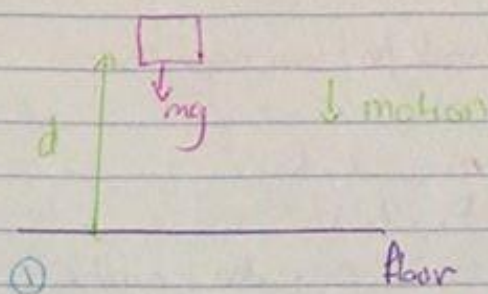 mg
motion
d
floor
1